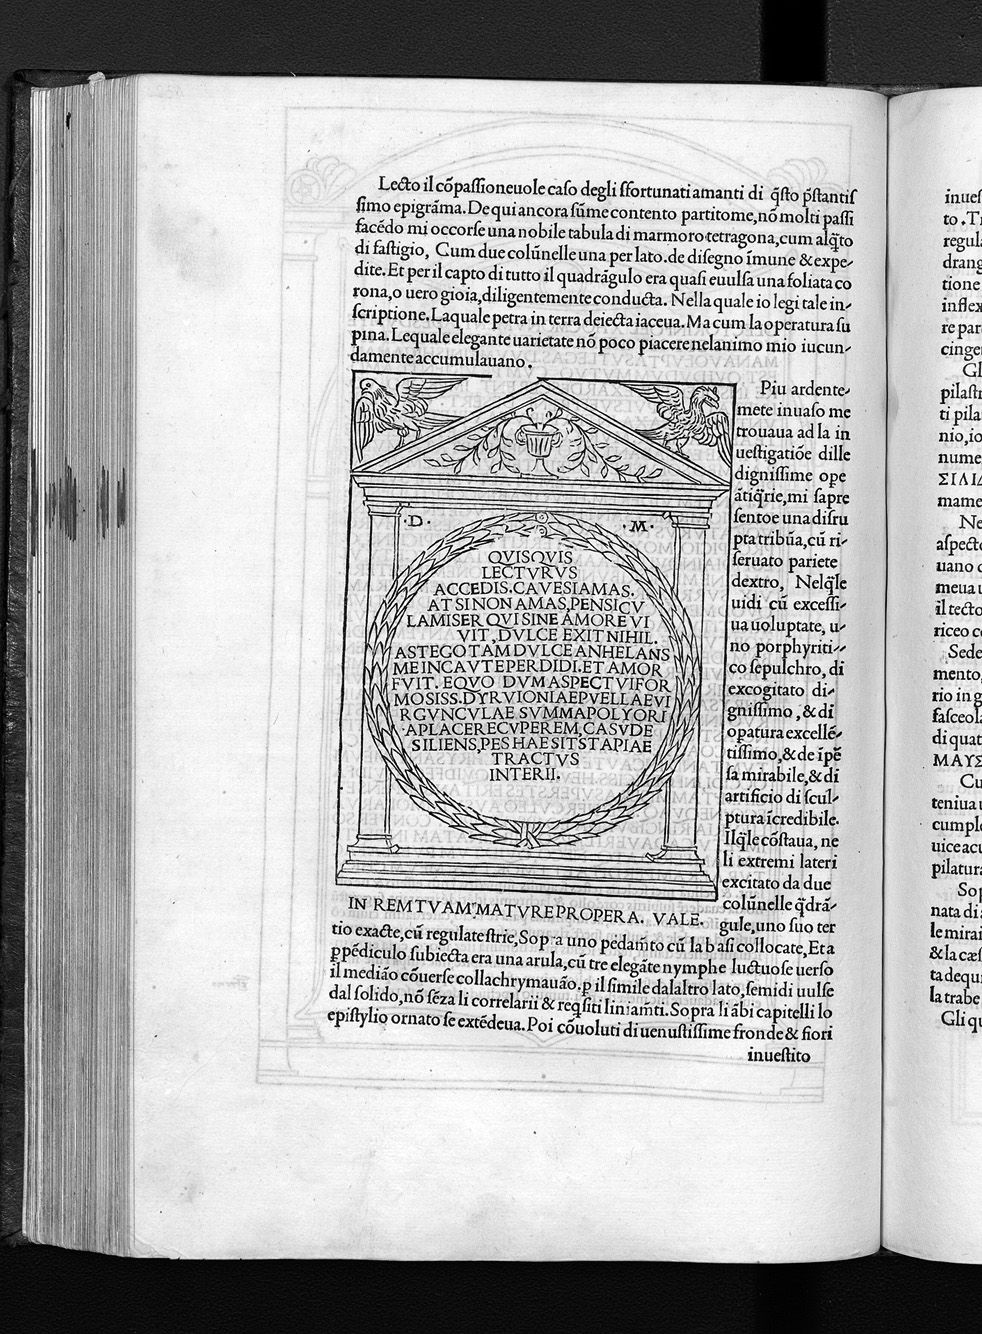 Lecto il cõpassioneuole caso degli sfortunati amanti di q̃sto p̃stantis
simo epigrãma. De qui ancora sũme contento partitome, nõ molti passi
facẽdo mi occorse una nobile tabula di marmoro tetragona, cum alq̃to
di fastigio, Cum due colũnelle una per lato. de disegno ĩmune & expe-
dite. Et per il capto di tutto il quadrãgulo era quasi euulsa una foliata co
rona, o uero gioia, diligentemente conducta. Nella quale io legi tale in-
scriptione. Laquale petra in terra deiecta iaceua. Ma cum la operatura su
pina. Lequale elegante uarietate nõ poco piacere nel animo mio iucun-
damente accumulauano.
.D. .M.
QVISQVIS
LECTVRVS
ACCEDIS. CAVE SI AMAS.
AT SI NON AMAS, PENSICV
LA MISER QVI SINE AMORE VI
VIT. DVLCE EXIT NIHIL.
AST EGO TAM DVLCE ANHELANS
ME INCAVTE PERDIDI. ET AMOR
FVIT. EQVO DVM ASPECTVI FOR
MOSISS. DYRVIONIAE PVELLAE VI
RGVNCVLAE SVMMA POLYORI
A PLACERE CVPEREM, CASV DE
SILIENS, PES HAESIT STAPIAE
TRACTVS
INTERII.
IN REM TVAM MATVRE PROPERA. VALE.
Piu ardente-
mete inuaso me
trouaua ad la in
uestigatiõe dille
dignissime ope
ãtiq̃rie, mi sapre
sentoe una disru
pta tribũa, cũ ri-
seruato pariete
dextro, Nelq̃le
uidi cũ excessi-
ua uoluptate, u-
no porphyriti-
co sepulchro, di
excogitato di-
gnissimo, & di
opatura excellẽ-
tissimo, & de ĩpẽ
sa mirabile, & di
artificio di scul-
ptura ĩcredibile.
Ilq̃le cõstaua, ne
li extremi lateri
excitato da due
colũnelle q̃drã-
gule, uno suo ter
tio exacte, cũ regulate strie, Sopra uno pedam̃to cũ la basi collocate, Et a
ꝑpẽdiculo subiecta era una arula, cũ tre elegãte nymphe luctuose uerso
il medião cõuerse collachrymauão. ꝑ il simile dal altro lato, semidi uulse
dal solido, nõ sẽza li correlarii & reqsiti liniam̃ti. Sopra li ãbi capitelli lo
epistylio ornato se extẽdeua. Poi cõuoluti di uenustissime fronde & fiori
inuestito
inues
to. Tr
regula
drang
tione
inflex
re par
cinge
Gl
pilastr
ti pila
nio, io
nume
ΣΙΛΙΔ
mame
Ne
aspecto
uano
meua u
il tecto
riceo co
Sede
mento,
rio in g
fasceol
di quat
ΜΑΥΣ
Cu
teniua u
cum pl
uice acu
pilatur
Sop
nata di
le mirai
& la cæs
ta dequi
la trabe
Gli qu